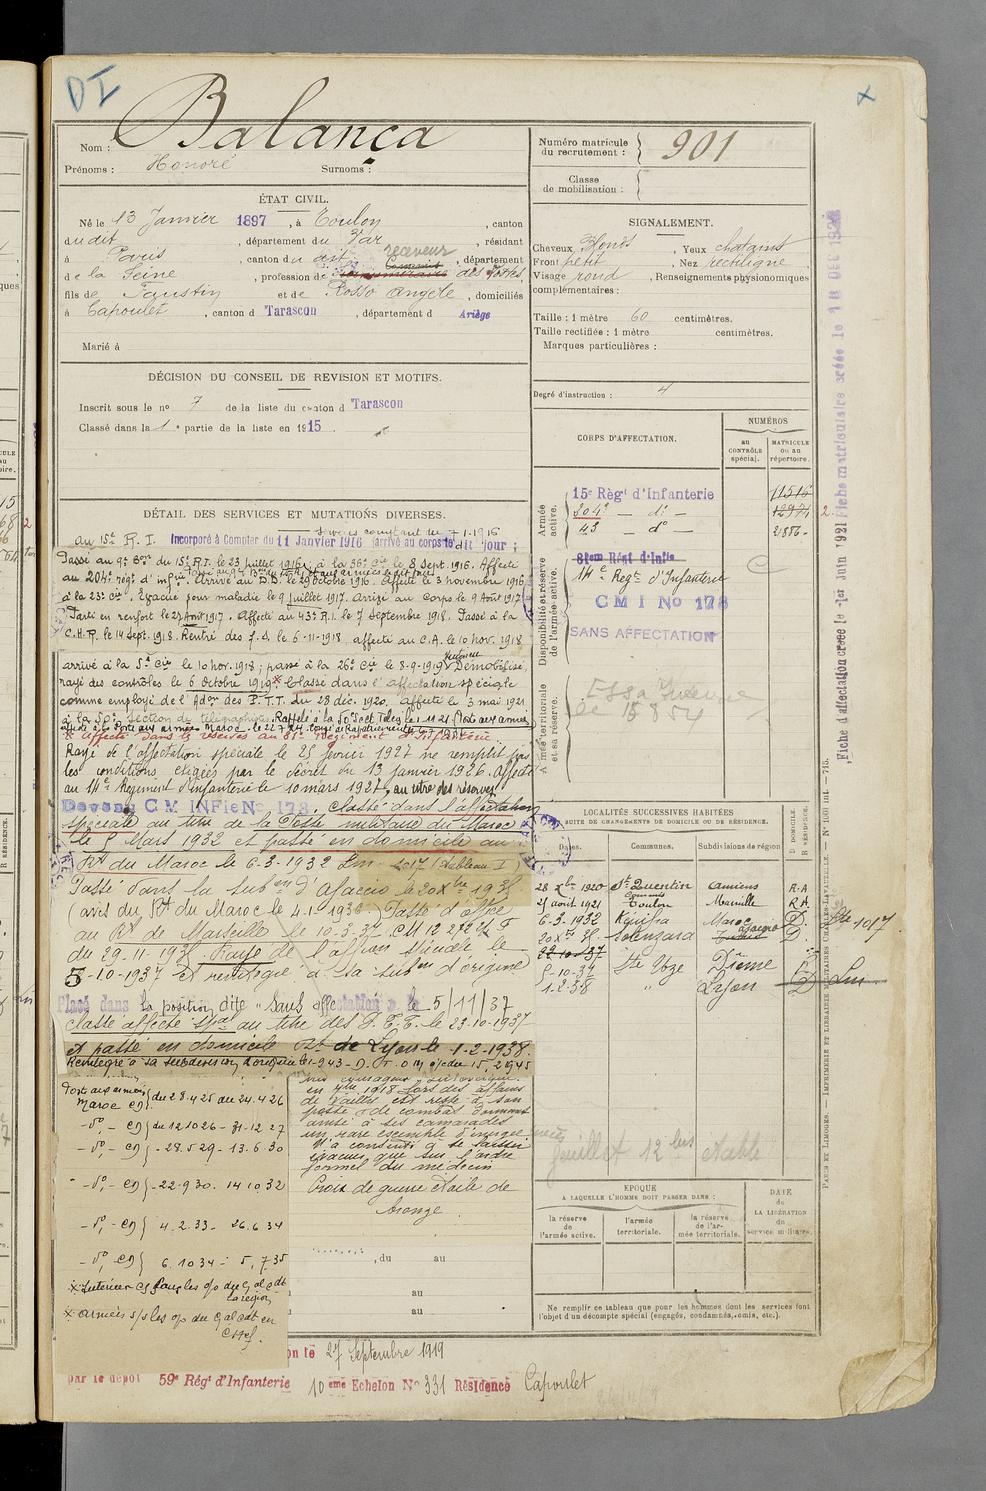 DI
Nom : Balança
Prénoms : Honoré Surnoms :
Numéro matricule du recrutement : 901
Classe de mobilisation :
ÉTAT CIVIL.
Né le 13 Janvier 1897, à Toulon, canton
du dit, département du Var, résidant
à Paris, canton du dit, receveur, département
de la Seine, profession de des Postes,
fils de Faustin et de Rosso Angèle, domiciliés
à Capoulet, canton d Tarascon, département d Ariège
Marié à
SIGNALEMENT.
Cheveux blonds, Yeux chatains
Front petit, Nez rectiligne,
Visage rond, Renseignements physionomiques
complémentaires :
Taille : 1 mètre 60 centimètres.
Taille rectifiée : 1 mètre centimètres.
Marques particulières :
Degré d'instruction : 4
DÉCISION DU CONSEIL DE REVISION ET MOTIFS.
Inscrit sous le no 7 de la liste du canton d Tarascon
Classé dans la 1e partie de la liste en 1915
CORPS D'AFFECTATION.
NUMÉROS
au CONTRÔLE spécial.
MATRICULE ou au répertoire.
Armée active.
15e Régt d'Infanterie 11516
204e — do — 12974
43 do — 21886
Disponibilité et réserve de l'armée active.
81em Régt d'Infie
14e Régt d'Infanterie
CMI No 178
SANS AFFECTATION
Armée territoriale et sa réserve.
DÉTAIL DES SERVICES ET MUTATIONS DIVERSES.
Services comptant du 7-1-1916
au 15e R. I. Incorporé à Compter du 11 Janvier 1916 (arrivé au corps le dit jour ;
Passé au 9e Bon du 15e R.I. le 23 juillet 1916, à la 36e Cie le 8 Sept. 1916. Affecté
au 204e régt d'infie. Arrivé au D.D. le 29 octobre 1916. Affecté le 3 novembre 1916
à la 23e Cie. Evacué pour maladie le 9 juillet 1917. Arrivé au Corps le 9 Août 1917
Parti en renfort le 27 Août 1917. Affecté au 43e R.I. le 7 septembre 1918. Passé à la
C.H.R. le 14 Sept. 1918. Rentré des 7.J. le 6-11-1918, affecté au C.A. le 10 nov. 1918
arrivé à la 5e Cie le 10 nov. 1918 ; passé à la 26e Cie le 8-9-1919. Démobilisé,
rayé des contrôles le 6 octobre 1919. Classé dans l'affectation spéciale
comme employé de l'Adon des P.T.T. du 28 déc. 1920. Affecté le 3 mai 1921
à la 50e Section de télégraphie. Rappelé à la 50e Sect. Teleg.
Affecté dans la réserve au 81e Régiment d'Infanterie
Rayé de l'affectation spéciale le 25 février 1927 ne remplit pas
les conditions exigées par le décret du 13 janvier 1926. Affecté
au 14e Régiment d'infanterie le 10 mars 1927, au titre des réserves
Devenu C M INFie No 178. Classé dans l'affectation
spéciale au titre de la Poste militaire du Maroc
le 5 Mars 1932 et passé en domicile au
Rt du Maroc le 6-3-1932 Lm 1017 (tableau I)
Passé dans la subon d'Ajaccio le 20 Xbre 1935
(avis du Rt du Maroc le 4-1-1936) Passé d'office
au Rt de Marseille le 10-3-37
du 29-11-1935 Rayé de l'affon spéciale le
5-10-1937 et réintégré à sa subon d'origine
Placé dans la position dite "Sans affectation" le 5/11/37
classé affecté spal au titre des P.T.T. le 23-10-1937
et passé en domicile Rt de Lyon le 1-2-1938.
Réintégré à sa subdivision d'origine le 1-2-43
Port aux armées
Maroc CD du 28.4.25 au 24.4.26
-do- CD du 12 10 26 - 31-12 27
-do- CD - 28.5 29 - 13.6 30
-do- CD - 22-9 30. 14 10 32
-do- CD 4.2.33 - 26.6.34
-do- CD 6.10 34 - 5.7 35
en 7bre 1918 lors des affaires
de Vailly est resté à son
poste de combat donnant
ainsi à ses camarades
un rare exemple d'énergie
N'a consenti à se laisser
évacuer que sur l'ordre
formel du médecin
Croix de guerre étoile de
bronze
, du au
au
au
LOCALITÉS SUCCESSIVES HABITÉES
PAR SUITE DE CHANGEMENTS DE DOMICILE OU DE RÉSIDENCE.
Dates. Communes. Subdivisions de région D. DOMICILE R. RÉSIDENCE.
28 Xbre 1920 St Quentin Amiens R.A.
21 août 1921 Toulon Marseille R.A.
6-3-1932 Kénifra Maroc D.
20 Xbre 35 Solenzara Ajaccio D.
22 10 37
5-10-37 Dième
1-2-38 " Lyon D
ÉPOQUE
A LAQUELLE L'HOMME DOIT PASSER DANS :
la réserve de l'armée active.
l'armée territoriale.
la réserve de l'armée territoriale.
DATE de LA LIBÉRATION du service militaire.
Ne remplir ce tableau que pour les hommes dont les services font l'objet d'un décompte spécial (engagés, condamnés, omis, etc.).
27 Septembre 1919
par le dépôt 59e Régt d'Infanterie 10eme Echelon No 331 Résidence Capoulet
Fiche d'affectation créée le 1er Juin 1921
PARIS ET LIMOGES. — IMPRIMERIE ET LIBRAIRIE MILITAIRES CHARLES-LAVAUZELLE.